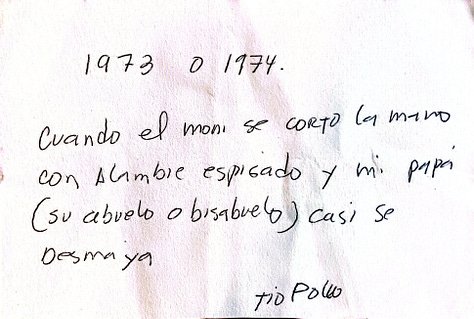 1973 o 1974.
Cuando el moni se corto la mano
con Alambre espigado y mi papá
(su abuelo o bisabuelo) casi se
Desmaya
tio Pollo